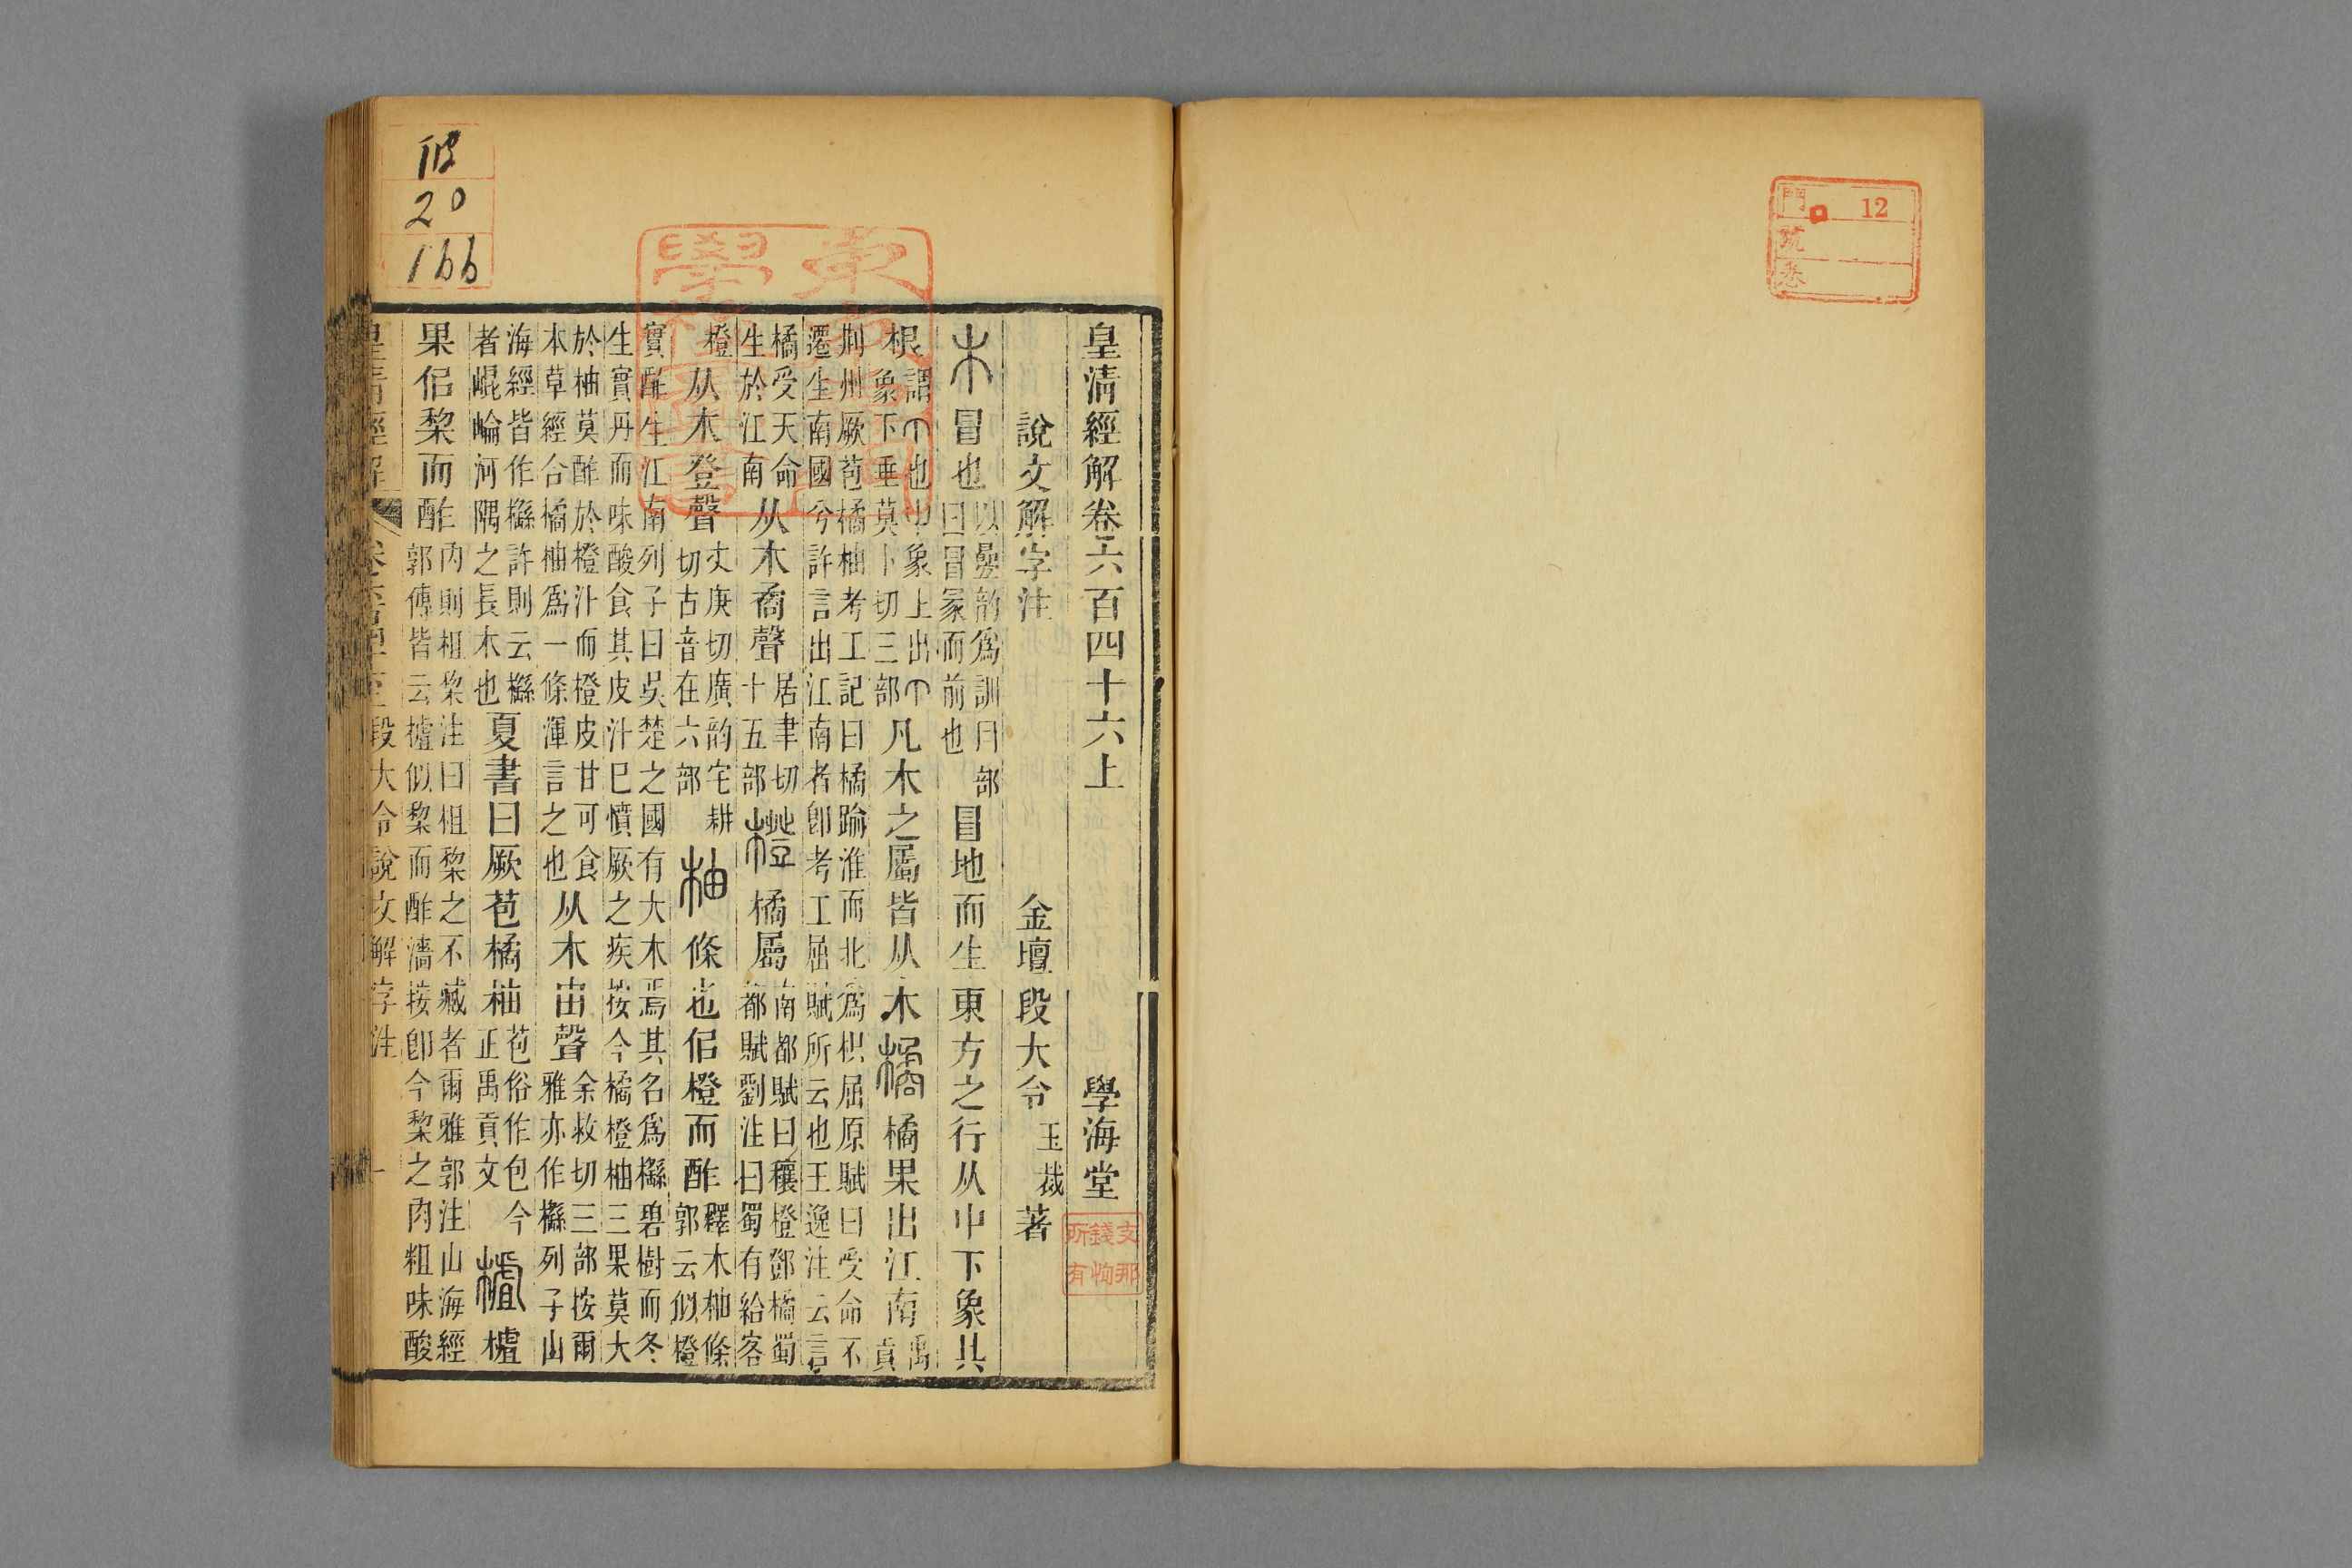 12
門
號
卷
皇清經解卷六百四十六上　學海堂
支那錢恂所有
說文解字注　金壇段大令玉裁著
木冒也以曡韵爲訓冃部曰冒冡而前也冒地而生東方之行从屮下象其
根謂𠆢也屮象上出𠆢象下垂莫卜切三部凡木之屬皆从木橘橘果出江南禹貢
荆州厥苞橘柚考工記曰橘踰淮而北爲枳屈原賦曰受命不遷生南國兮許言出江南者卽考工屈賦所云也王逸注云言
橘受天命生於江南从木矞聲居聿切十五部橙橘屬南都賦曰穰橙鄧橘蜀都賦劉注曰蜀有給客
橙从木登聲丈庚切廣韵宅耕切古音在六部柚條也佀橙而酢釋木柚條郭云似橙
實酢生江南列子曰吳楚之國有大木焉其名爲櫾碧樹而冬生實丹而味酸食其皮汁已憤厥之疾按今橘橙柚三果莫大
於柚莫酢於橙汁而橙皮甘可食本草經合橘柚爲一條渾言之也从木由聲余救切三部按爾雅亦作櫾列子山
海經皆作櫾許則云櫾者崐崘河隅之長木也夏書曰厥苞橘柚苞俗作包今正禹貢文樝樝
果佀棃而酢內則柤棃注曰柤棃之不臧者爾雅郭注山海經郭傳皆云樝似棃而酢濇按卽今棃之肉粗味酸
皇清經解　段大令說文解字注　一
20
166